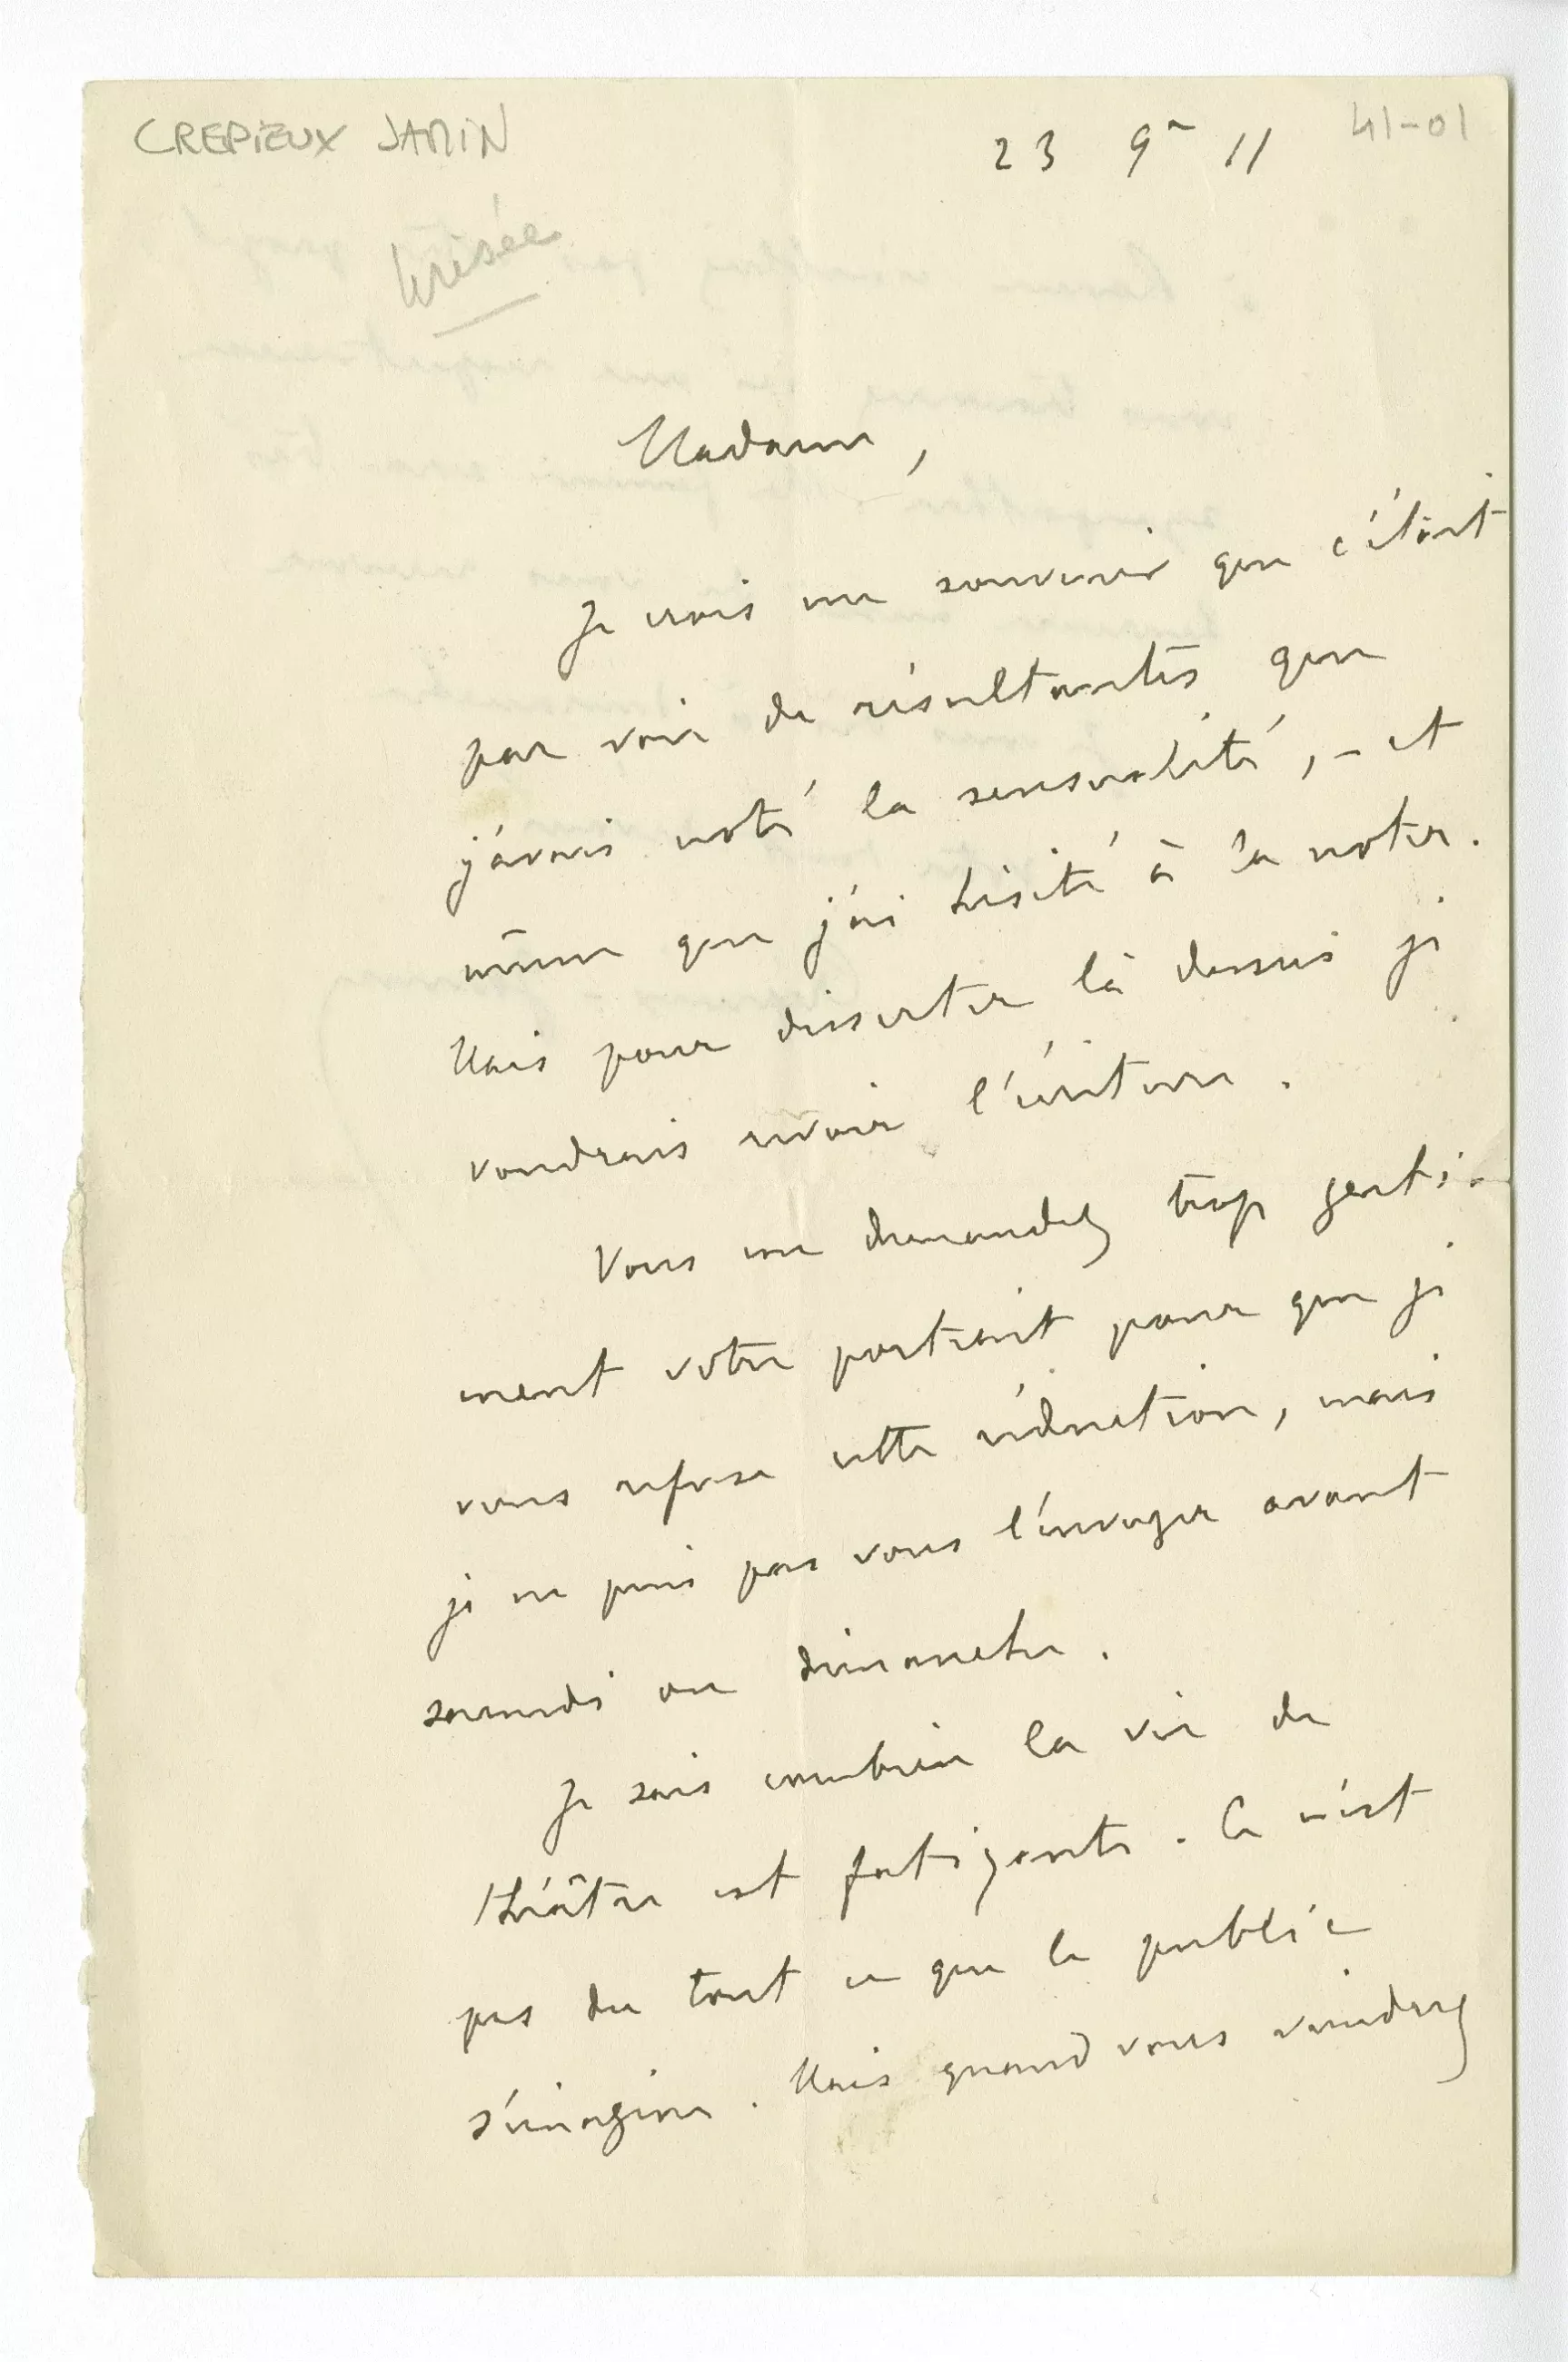 CREPIEUX JAMIN
23 9re 11
41-01
Madame,
Je crois me souvenir que c'était
par voie de résultantes que
j'avais noté la sensualité, - et
même que j'ai hésité à la noter.
Mais pour disserter là dessus je
voudrais revoir l'écriture.
Vous me demandez trop genti-
ment votre portrait pour que je
vous refuse cette rédaction, mais
je ne puis pas vous l'envoyer avant
samedi ou dimanche.
Je sais combien la vie de
théâtre est fatigante. Ce n'est
pas du tout ce que le public
s'imagine. Mais quand vous viendrez